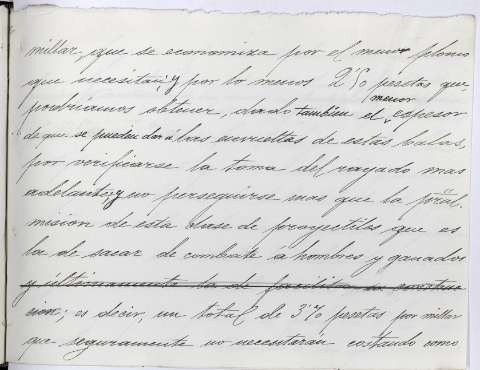 millar, que se economiza por el menor plomo
que necesitan; y por lo menos 2'50 pesetas que
podriamos obtener, dado tambien el menor espesor
de que se pueden dar á las envueltas de estas balas,
por verificarse la toma del rayado mas
adelante; y no perseguirse mas que la pral.
mision de esta clase de proyectiles que es
la de sacar de combate á hombres y ganados
y últimamente la de facilitar su construc
cion; es decir, un total de 3'70 pesetas por millar
que seguramente no necesitarán costando como